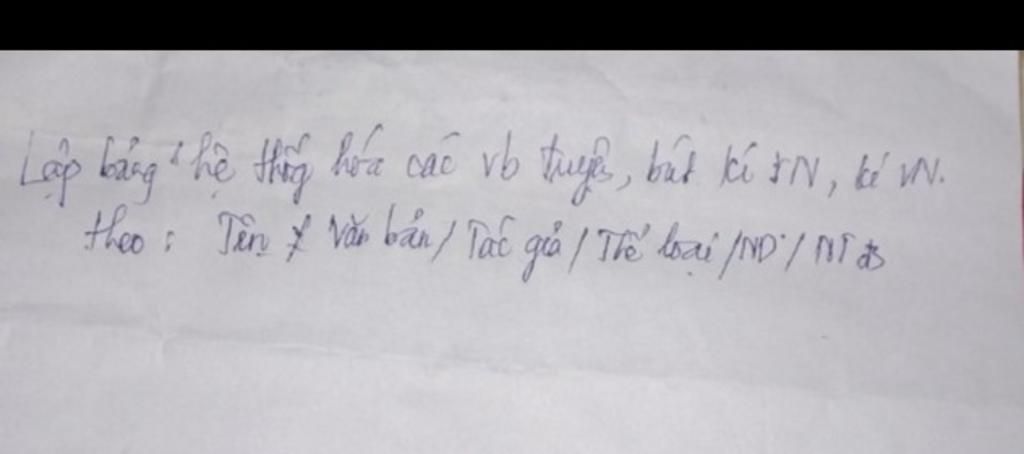 Lập bảng hệ thống hóa các vb truyện, bút kí VN, kí VN.
theo: Tên văn bản / Tác giả / Thể loại / ND / NT